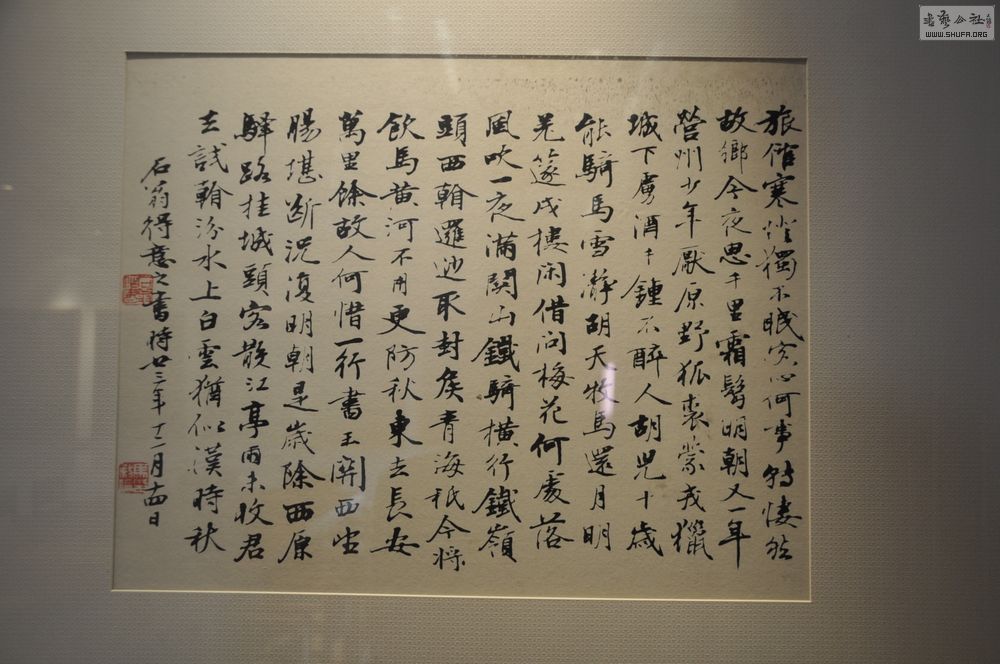 旅館寒燈獨不眠客心何事轉悽然
故鄉今夜思千里霜鬢明朝又一年
營州少年厭原野狐裘蒙戎獵
城下虜酒千鍾不醉人胡兒十歲
能騎馬雪瀞胡天牧馬還月明
羌篴戍樓閑借問梅花何處落
風吹一夜滿關山鐵騎橫行鐵嶺
頭西看邏沙取封侯青海衹今將
飲馬黃河不用更防秋東去長安
萬里餘故人何惜一行書玉關西望
腸堪斷況復明朝是歲除西原
驛路挂城頭客散江亭雨未收君
去試看汾水上白雲猶似漢時秋
石翁得意之書時廿三年十二月十四日
書藝公社
WWW.SHUFA.ORG